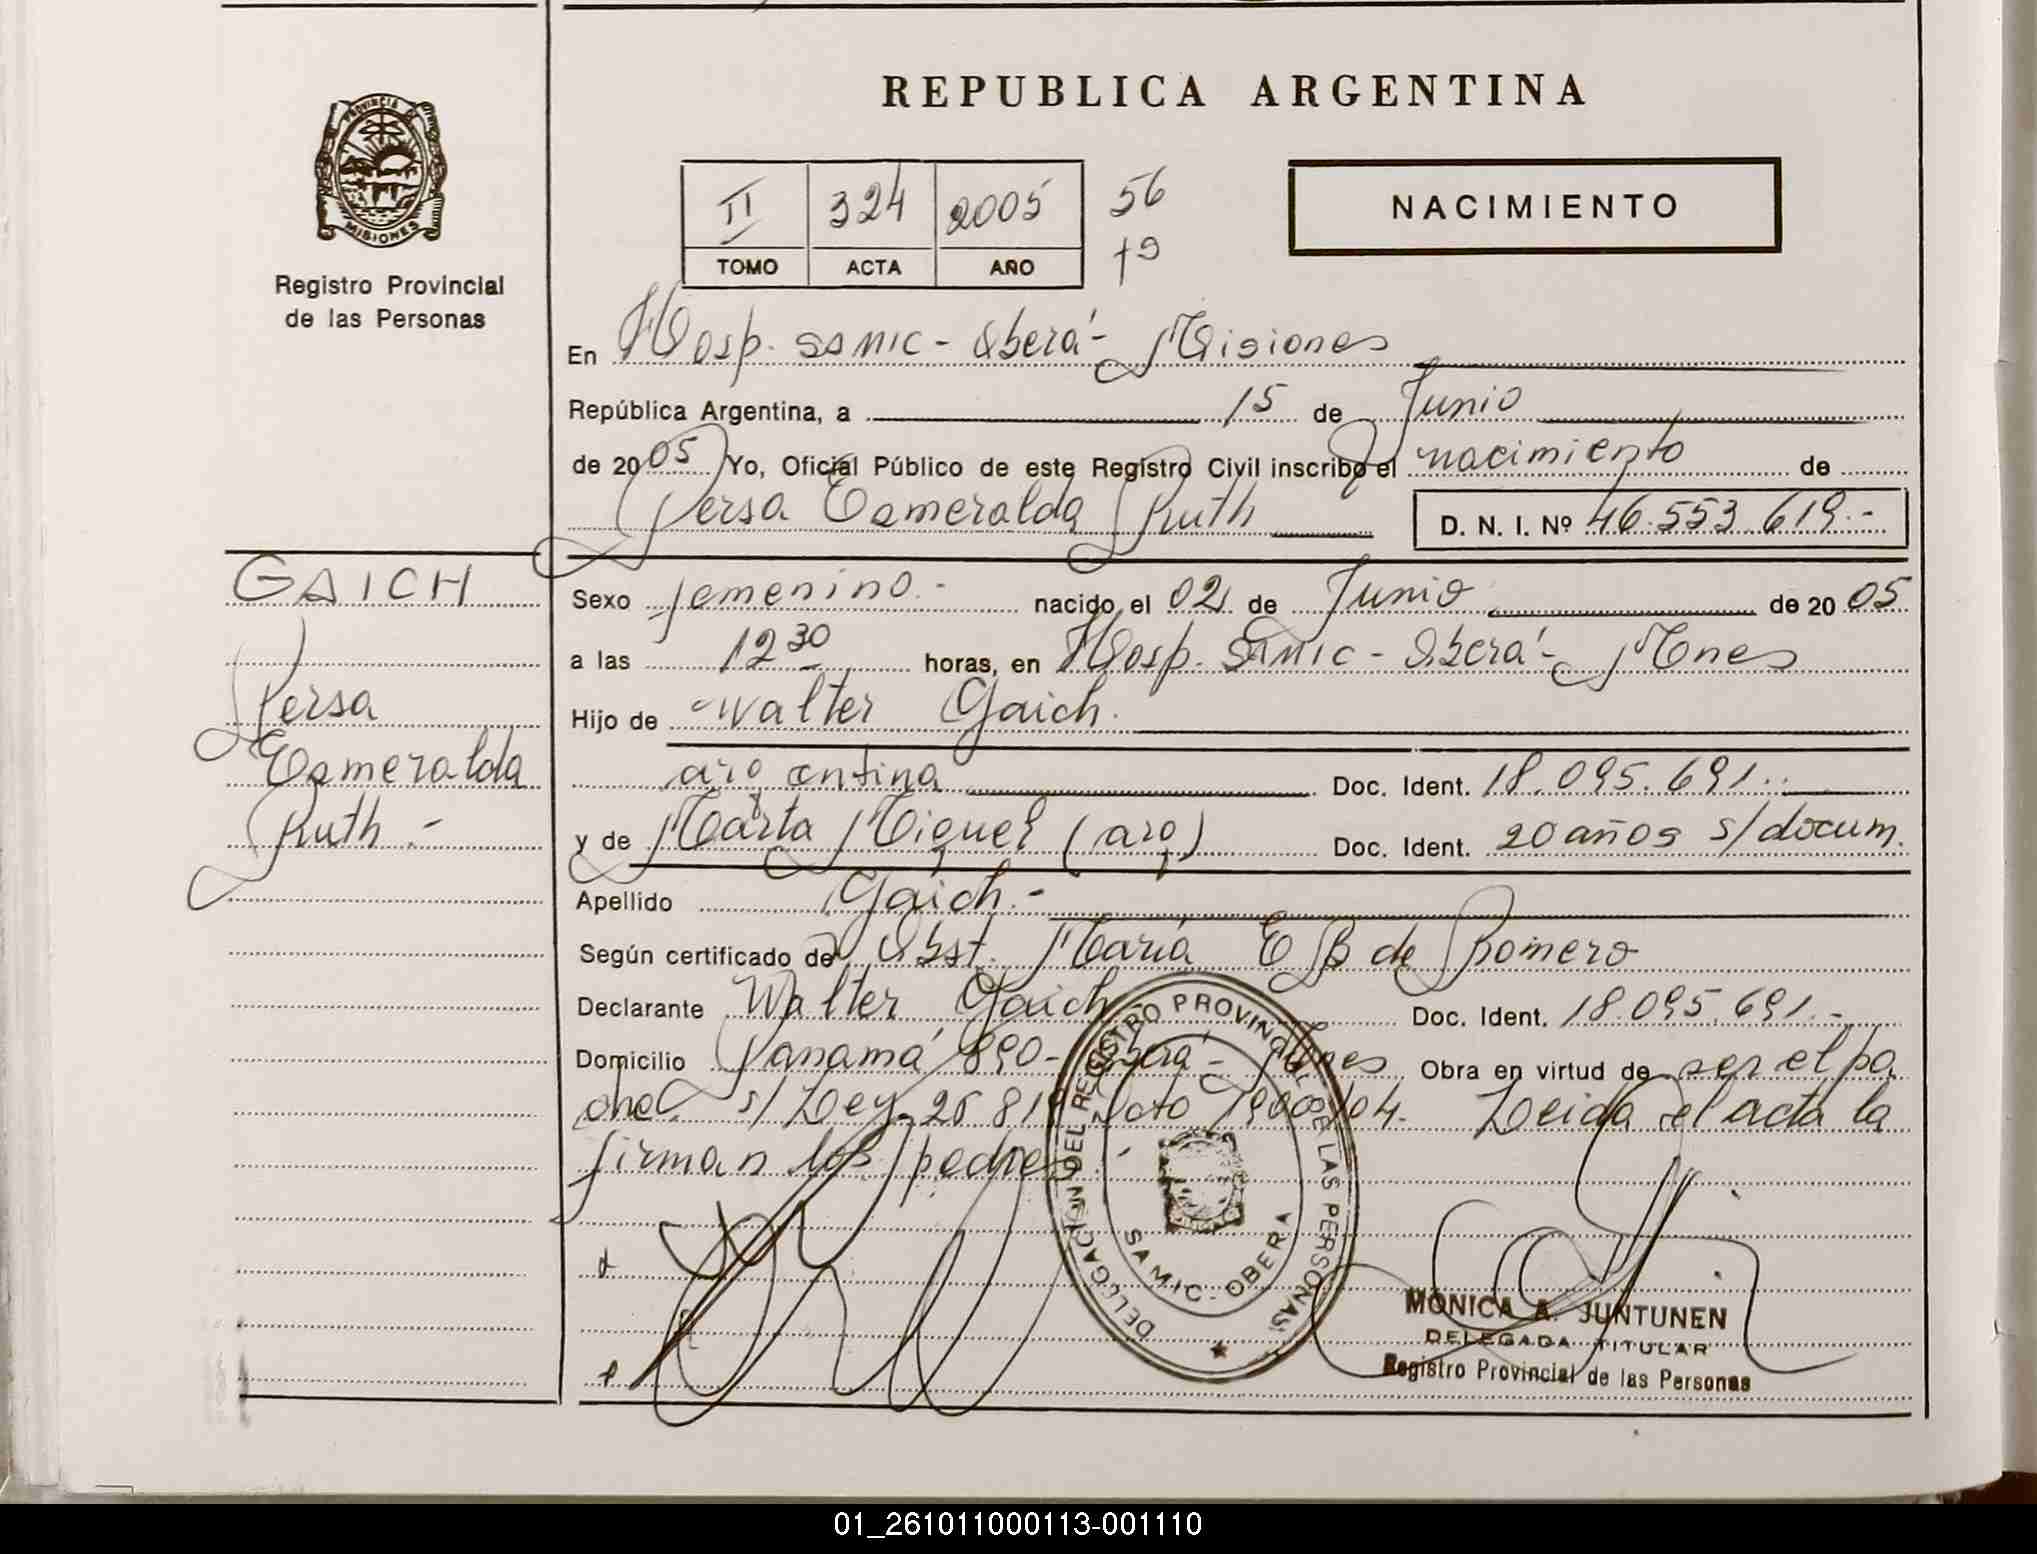 REPUBLICA ARGENTINA
PROVINCIA
MISIONES
Registro Provincial
de las Personas
II 324 2005
TOMO ACTA AÑO
56
79
NACIMIENTO
En Hosp. SAMIC - Oberá - Misiones
República Argentina, a 15 de Junio
de 2005 Yo, Oficial Público de este Registro Civil inscribo el nacimiento de
Persa Esmeralda Ruth D. N. I. Nº 46.553.619.-
GAICH
Persa
Esmeralda
Ruth.-
Sexo femenino.- nacido el 02 de Junio de 2005
a las 12 30 horas, en Hosp. SAMIC - Oberá - Mnes
Hijo de Walter Gaich.
argentina Doc. Ident. 18.095.691.
y de Marta Miguel (arg) Doc. Ident. 20 años s/docum.
Apellido Gaich.-
Según certificado de Obst. María E B de Romero
Declarante Walter Gaich Doc. Ident. 18.095.691.-
Domicilio Panamá 890 - Oberá - Mnes Obra en virtud de ser el pa
dre. s/ Ley 25 819 Dcto 1900/04. Leida el acta la
firman los padres.-
DELEGACION DEL REGISTRO PROVINCIAL DE LAS PERSONAS
SAMIC - OBERA
MONICA A. JUNTUNEN
DELEGADA TITULAR
Registro Provincial de las Personas
01_261011000113-001110